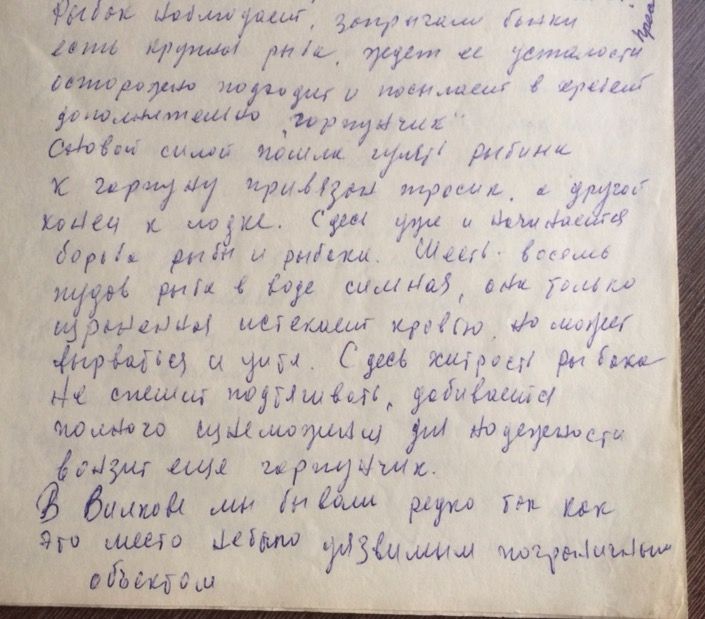 Рыбак наблюдает, запрыгали банки
есть крупная рыба, ждет ее усталости
осторожно подходит и посылает в хребет
дополнительно "гарпунчик"
силой пошла гулять рыбина
К гарпуну привязан тросик, а другой
конец к лодке. Сдесь уже и начинается
борьба рыбы и рыбака. Шесть-восемь
пудов рыба в воде сильная, она только
израненная истекает кровью, но может
вырваться и уйти. Сдесь хитрость рыбака
не спешит подтягивать, добивается
полного изнеможения для надежности
вонзит еще гарпунчик.
В Вилкове мы бывали редко так как
это место небыло уязвимым пограничным
объектом